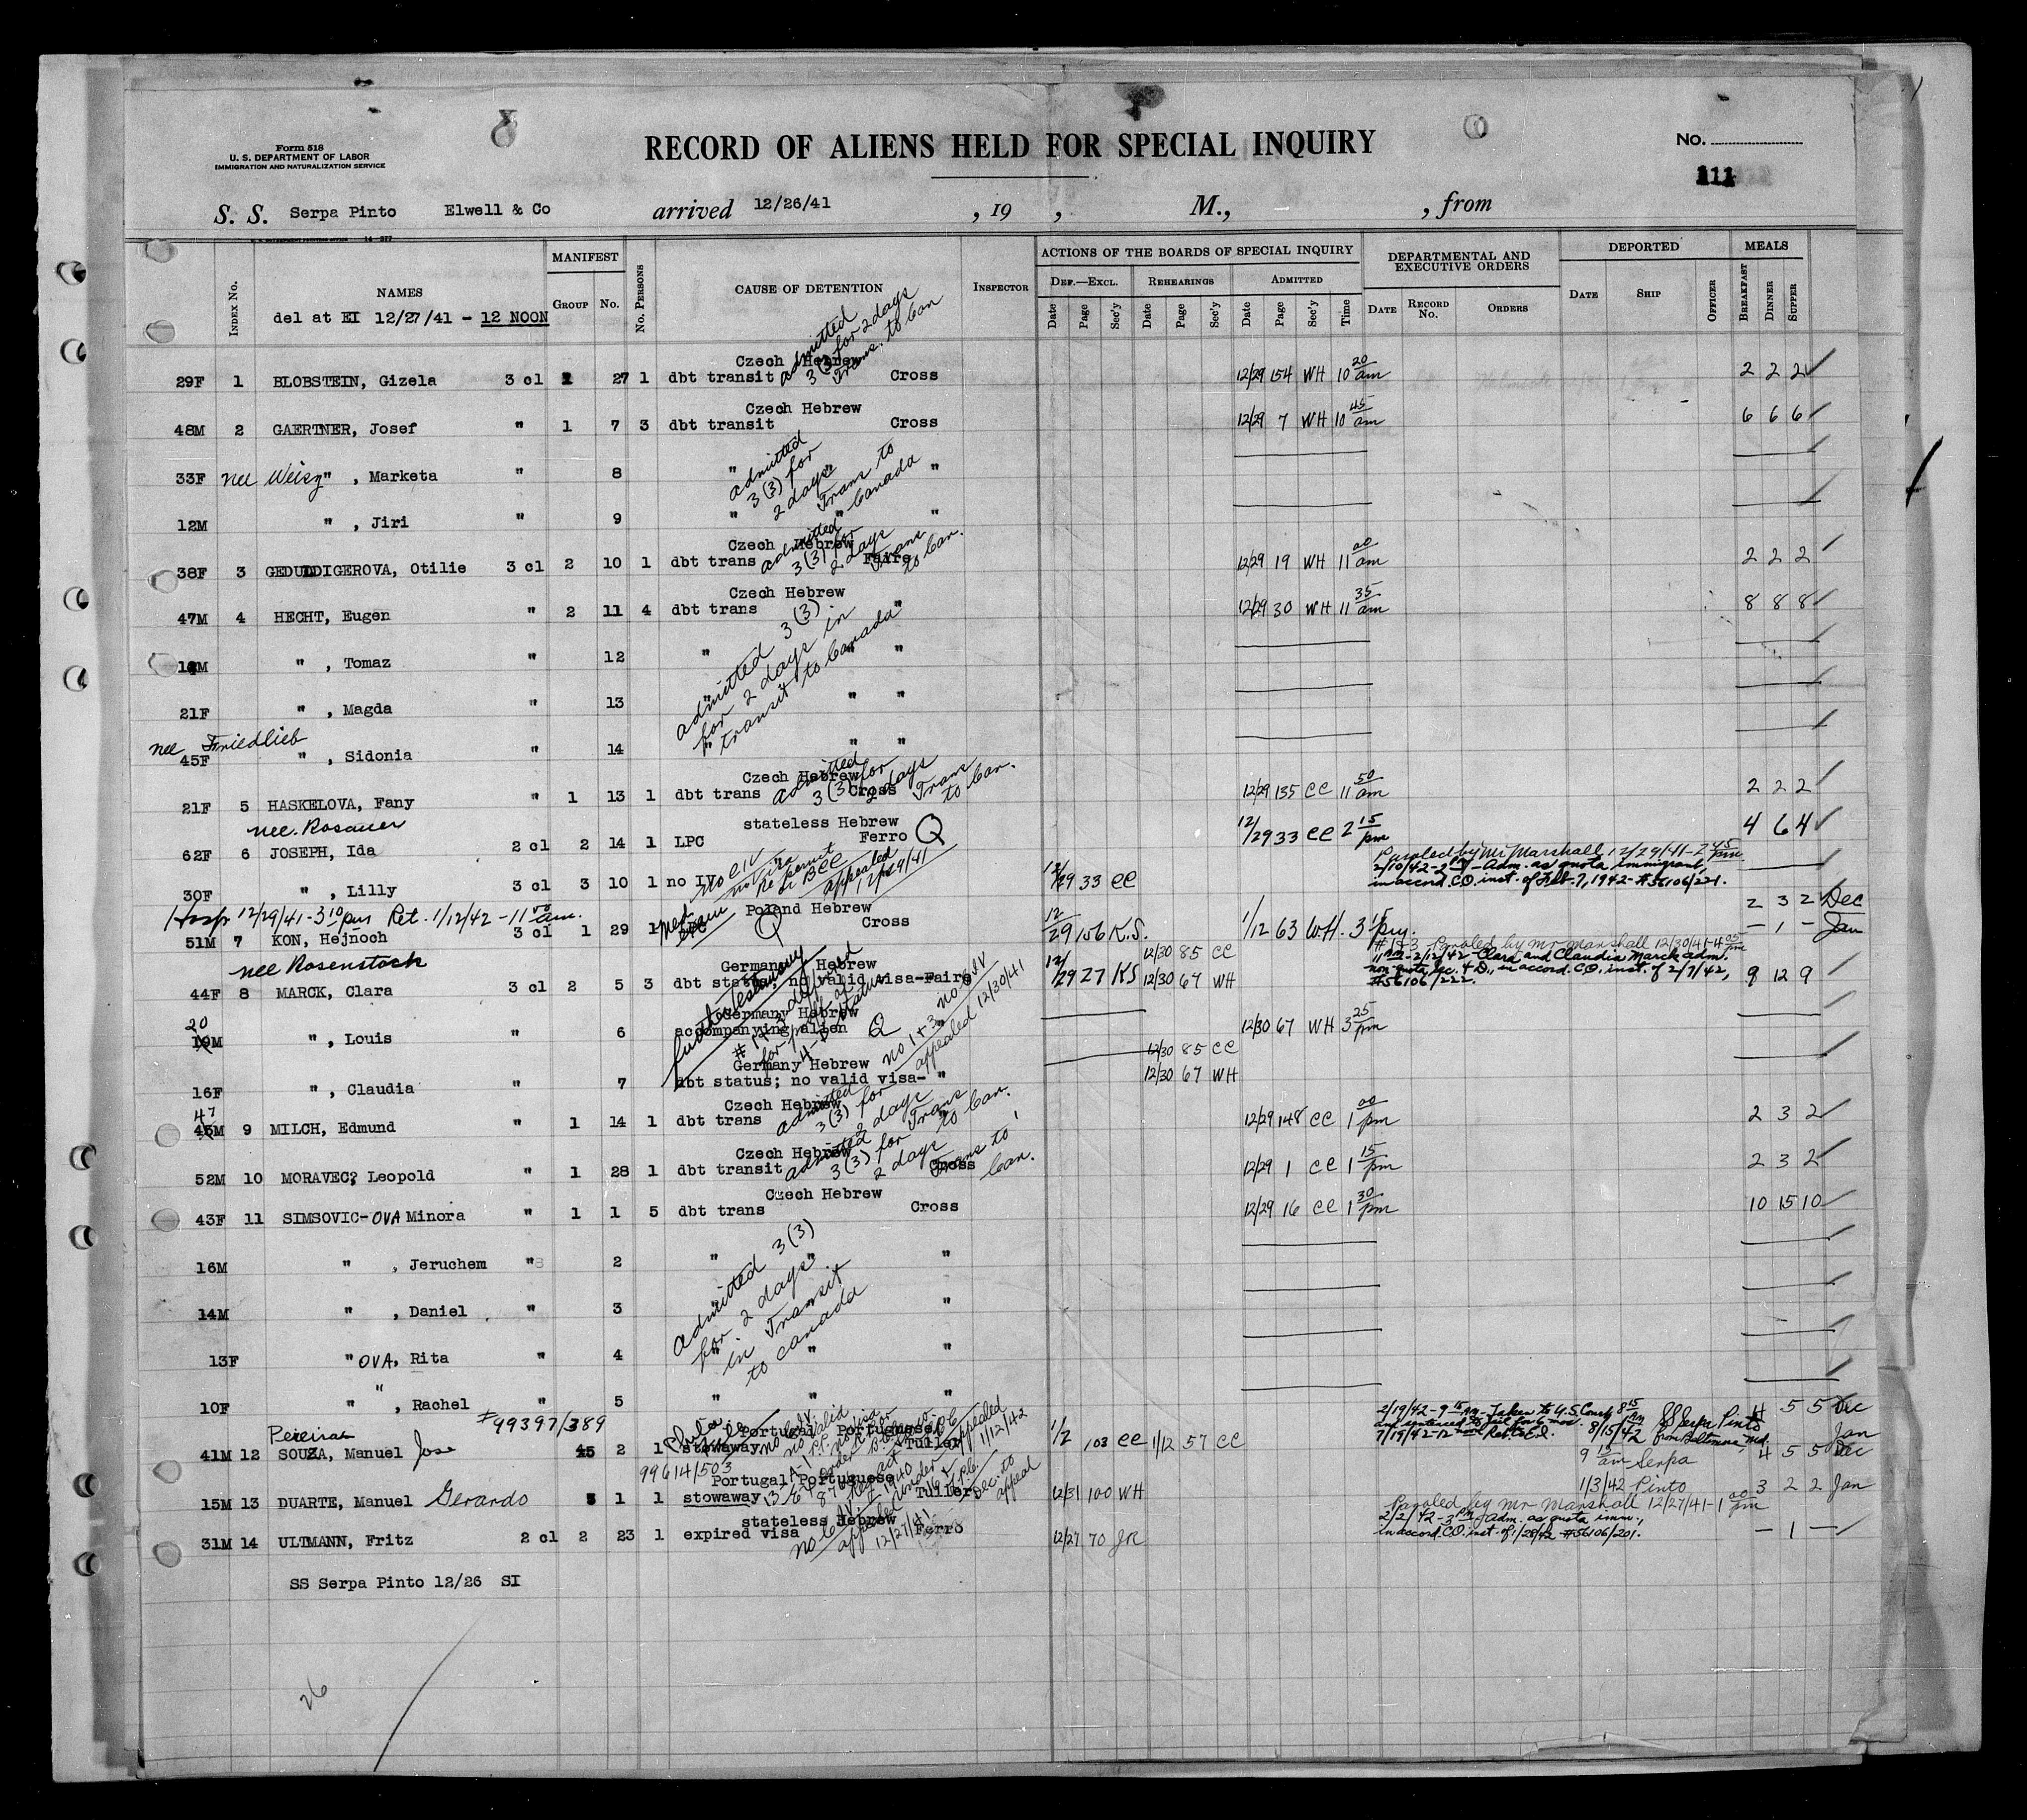 Form 518
U. S. DEPARTMENT OF LABOR
IMMIGRATION AND NATURALIZATION SERVICE
RECORD OF ALIENS HELD FOR SPECIAL INQUIRY
No.
111
S. S. Serpa Pinto Elwell & Co arrived 12/26/41 , 19 , M., , from
Index No. NAMES MANIFEST Group No. No. Persons CAUSE OF DETENTION Inspector ACTIONS OF THE BOARDS OF SPECIAL INQUIRY DEPARTMENTAL AND EXECUTIVE ORDERS DEPORTED MEALS
Def.—Excl. Rehearings Admitted
Date Page Sec'y Date Page Sec'y Date Page Sec'y Time Date Record No. Orders Date Ship Officer Breakfast Dinner Supper
del at EI 12/27/41 - 12 NOON
admitted 3(3) for 2 days Trans. to Can
Czech Hebrew
29F 1 BLOBSTEIN, Gizela 3 cl 1 27 1 dbt transit Cross 12/29 154 WH 10 20 am 2 2 2 ✓
Czech Hebrew
48M 2 GAERTNER, Josef " 1 7 3 dbt transit Cross 12/29 7 WH 10 45 am 6 6 6 ✓
33F nee Weisz " , Marketa " 8 " " "
admitted 3(3) for 2 days Trans to Canada
12M " , Jiri " 9 " " "
Czech Hebrew
38F 3 GEDULDIGEROVA, Otilie 3 cl 2 10 1 dbt trans Faire 12/29 19 WH 11 00 am 2 2 2 ✓
admitted 3(3) for 2 days Trans to Can.
Czech Hebrew
47M 4 HECHT, Eugen " 2 11 4 dbt trans " 12/29 30 WH 11 35 am 8 8 8 ✓
" , Tomaz " 12 " " "
21F " , Magda " 13 " " "
nee Friedlieb
45F " , Sidonia " 14 " " "
admitted 3(3) for 2 days in transit to Canada
Czech Hebrew
21F 5 HASKELOVA, Fany " 1 13 1 dbt trans Cross 12/29 135 CC 11 50 am 2 2 2 ✓
admitted 3(3) for 2 days Trans to Can.
nee. Rosauer
stateless Hebrew
62F 6 JOSEPH, Ida 2 cl 2 14 1 LPC Ferro Q 12/29 33 CC 2 15 pm 4 6 4 ✓
Paroled by Mr Marshall 12/29/41 - 2 45 pm
2/10/42 - 2 pm - Adm. as quota immigrant,
in accord. C.O. inst. of Feb. 7, 1942 - #56106/221.
30F " , Lilly 3 cl 3 10 1 no IV 12/29 33 CC
appealed 12/29/41
Hosp 12/29/41 - 3 10 pm Ret. 1/12/42 - 11 am. 2 3 2 Dec
Poland Hebrew
51M 7 KON, Hejnoch 3 cl 1 29 1 Cross Q 12/29 156 K.S. 1/12 63 W.H. 3 15 pm. - 1 - Jan
#1 & 3 Paroled by mr marshall 12/30/41 - 4 05 pm
11 am - 2/12/42 - Clara and Claudia Marck adm.
non quota, Sec. 4 D., in accord. C.O. inst. of 2/7/42,
#56106/222.
nee Rosenstock
Germany Hebrew 12/30 85 CC
44F 8 MARCK, Clara 3 cl 2 5 3 dbt status; no valid visa-Faire 12/29 27 KS 12/30 67 WH 9 12 9 ✓
Germany Hebrew
20
19M " , Louis " 6 accompanying alien Q 12/30 67 WH 3 25 pm
further testimony
no 1 + 3 no IV appealed 12/30/41
12/30 85 CC
Germany Hebrew 12/30 67 WH
16F " , Claudia " 7 dbt status; no valid visa- "
47
Czech Hebrew
45M 9 MILCH, Edmund " 1 14 1 dbt trans " 12/29 148 CC 1 00 pm 2 3 2 ✓
admitted 3(3) for 2 days Trans to Can.
Czech Hebrew
52M 10 MORAVEC, Leopold " 1 28 1 dbt transit Cross 12/29 1 CC 1 15 pm 2 3 2 ✓
admitted 3(3) for 2 days Trans to Can.
Czech Hebrew
43F 11 SIMSOVIC-OVA Minora " 1 1 5 dbt trans Cross 12/29 16 CC 1 30 pm 10 15 10 ✓
16M " , Jeruchem " 2 " " "
14M " , Daniel " 3 " "
13F " OVA, Rita " 4 " " "
10F " , Rachel " 5 " " "
admitted 3(3) for 2 days in Transit to Canada
#99397/389
2/19/42 - 9 15 AM - Taken to U.S. Court
and sentenced to Jail for 6 mos.
7/15/42 - 12 noon Ret. to E.I.
8 15 AM 8/15/42 SS Serpa Pinto from Baltimore, Md. 4 5 5 Dec
Jan
Pereira
Portugal Portuguese
41M 12 SOUZA, Manuel Jose 45 2 1 stowaway Tuller 1/2 103 CC 1/12 57 CC
appealed 1/12/42
99614/503 9 15 am Serpa 4 5 5 Dec
Portugal Portuguese 1/3/42 Pinto 3 2 2 Jan
15M 13 DUARTE, Manuel Gerardo 5 1 1 stowaway Tuller 12/31 100 WH
Paroled by mr Marshall 12/27/41 - 1 00 pm
2/2/42 - 3 PM Adm. as quota imm.,
in accord. C.O. inst. of 1/28/42 - #56106/201.
stateless Hebrew
31M 14 ULTMANN, Fritz 2 cl 2 23 1 expired visa Ferro 12/27 70 - 1 -
appealed 12/27/41
SS Serpa Pinto 12/26 SI
26